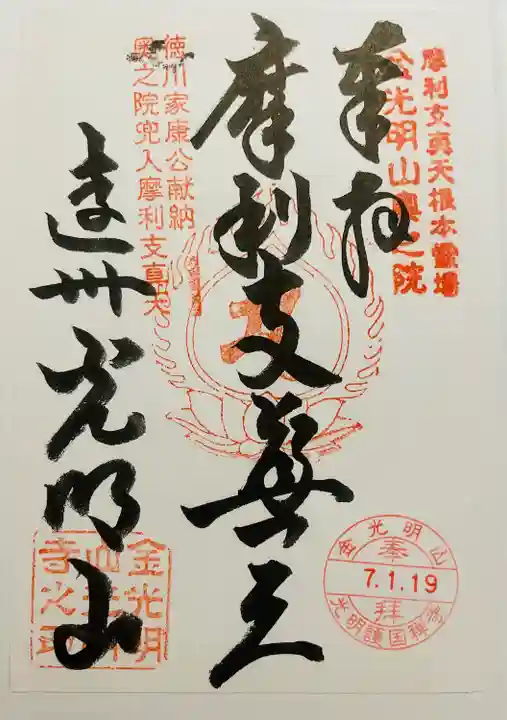 摩利支真天根本霊場
金光明山奥之院
奉拝
摩利支尊天
徳川家康公献納
奥之院兜入摩利支真天
遠州光明山
金光明山
奉
7.1.19
拝
光明護国禅
金光明
山
寺之印